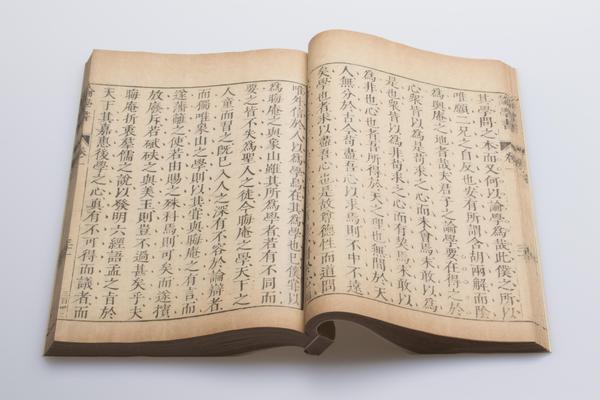 其學問之本而又何以論學為哉此僕之所以
唯願二兄之自反也安有所謂含胡兩解而陰
為輿庵之地者哉夫君子之論學要在得之於
心衆皆以為是苟求之心而未會焉未敢以為
是也衆皆以為非苟求之心而有契焉未敢以
為非也心也者吾所得於天之理也無間於天
人無分於古今苟盡吾心以求焉則不中不遠
矣學也者求以盡吾心也是故尊德性而道問
唯外信於人以為學烏在其為學也已僕嘗以
為晦庵之與象山雖其所為學者若有不同而
要之皆不失為聖人之徒今晦庵之學天下之
人童而習之既已入人之深有不容於論辯者
而獨唯象山之學則以其嘗與晦庵之有言而
遂藩籬之使若由賜之殊科焉則可矣而遂擯
放廢斥若碔砆之與美玉則豈不過甚矣乎夫
晦庵折衷羣儒之說以發明六經語孟之旨於
天下其嘉惠後學之心真有不可得而議者而